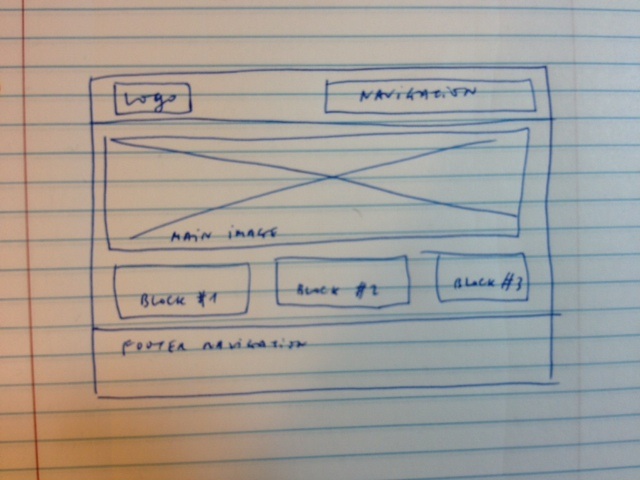 Logo
NAVIGATION
MAIN IMAGE
BLOCK #1
BLOCK #2
BLOCK #3
FOOTER NAVIGATION